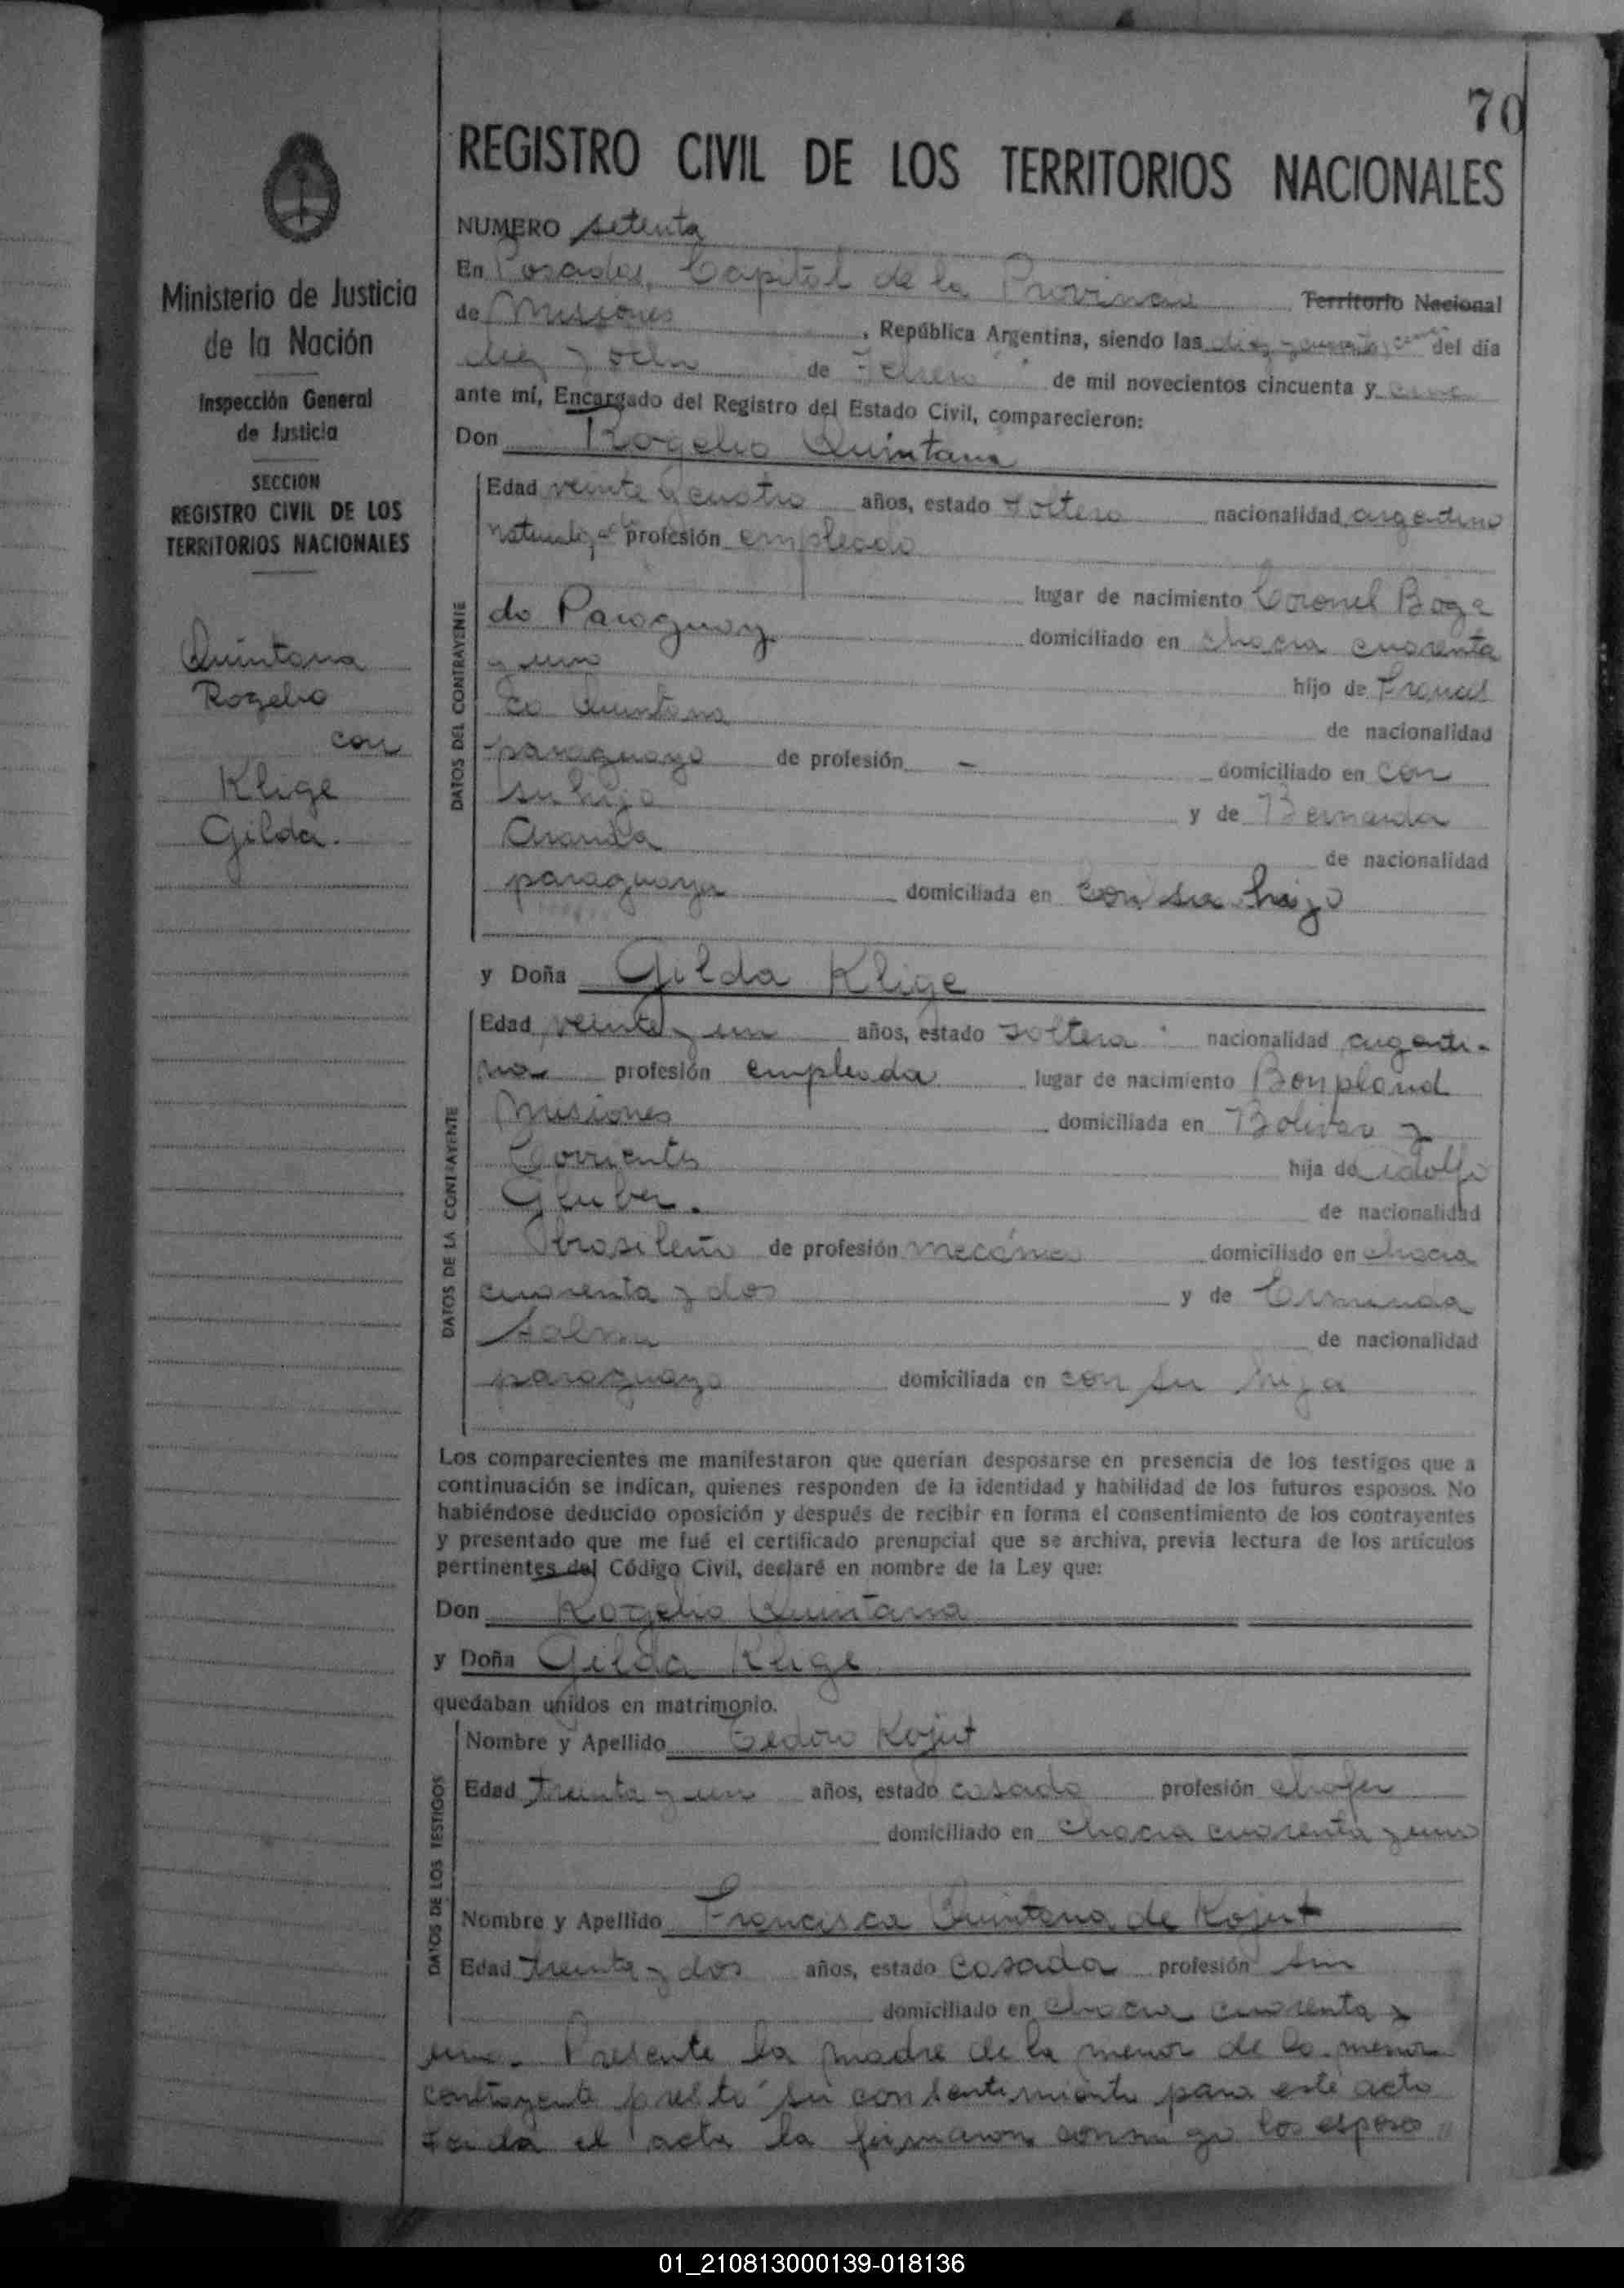 70
REGISTRO CIVIL DE LOS TERRITORIOS NACIONALES
Ministerio de Justicia
de la Nación
Inspección General
de Justicia
SECCION
REGISTRO CIVIL DE LOS
TERRITORIOS NACIONALES
Quintana
Rogelio
con
Klige
Gilda.
NUMERO setenta
En Posadas, Capital de la Provincia Territorio Nacional
de Misiones, República Argentina, siendo las diez y del día
diez y ocho de Febrero de mil novecientos cincuenta y
ante mí, Encargado del Registro del Estado Civil, comparecieron:
Don Rogelio Quintana
DATOS DEL CONTRAYENTE
Edad veinte y cuatro años, estado soltero nacionalidad argentino
profesión empleado
lugar de nacimiento Coronel Boga
do Paraguay domiciliado en chacra cuarenta
y uno hijo de Francis
co Quintana de nacionalidad
paraguayo de profesión - domiciliado en con
su hijo y de Bernarda
Aranda de nacionalidad
paraguaya domiciliada en con su hijo
y Doña Gilda Klige
DATOS DE LA CONTRAYENTE
Edad veinte y un años, estado soltera nacionalidad argenti-
na profesión empleada lugar de nacimiento Bonpland
Misiones domiciliada en Bolivar y
Corrientes hija de Adolfo
de nacionalidad
brasileño de profesión mecánico domiciliado en chacra
cuarenta y dos y de
de nacionalidad
paraguaya domiciliada en con su hija
Los comparecientes me manifestaron que querían desposarse en presencia de los testigos que a
continuación se indican, quienes responden de la identidad y habilidad de los futuros esposos. No
habiéndose deducido oposición y después de recibir en forma el consentimiento de los contrayentes
y presentado que me fué el certificado prenupcial que se archiva, previa lectura de los artículos
pertinentes del Código Civil, declaré en nombre de la Ley que:
Don Rogelio Quintana
y Doña Gilda Klige
quedaban unidos en matrimonio.
DATOS DE LOS TESTIGOS
Nombre y Apellido Kojut
Edad treinta y un años, estado casado profesión chofer
domiciliado en chacra cuarenta y uno
Nombre y Apellido Francisca Quintana de Kojut
Edad treinta y dos años, estado casada profesión sin
domiciliado en chacra cuarenta y
uno. Presente la madre de la menor de la menor
contrayente presto su consentimiento para este acto
Leida el acta la firmaron conmigo los esposos
01_210813000139-018136